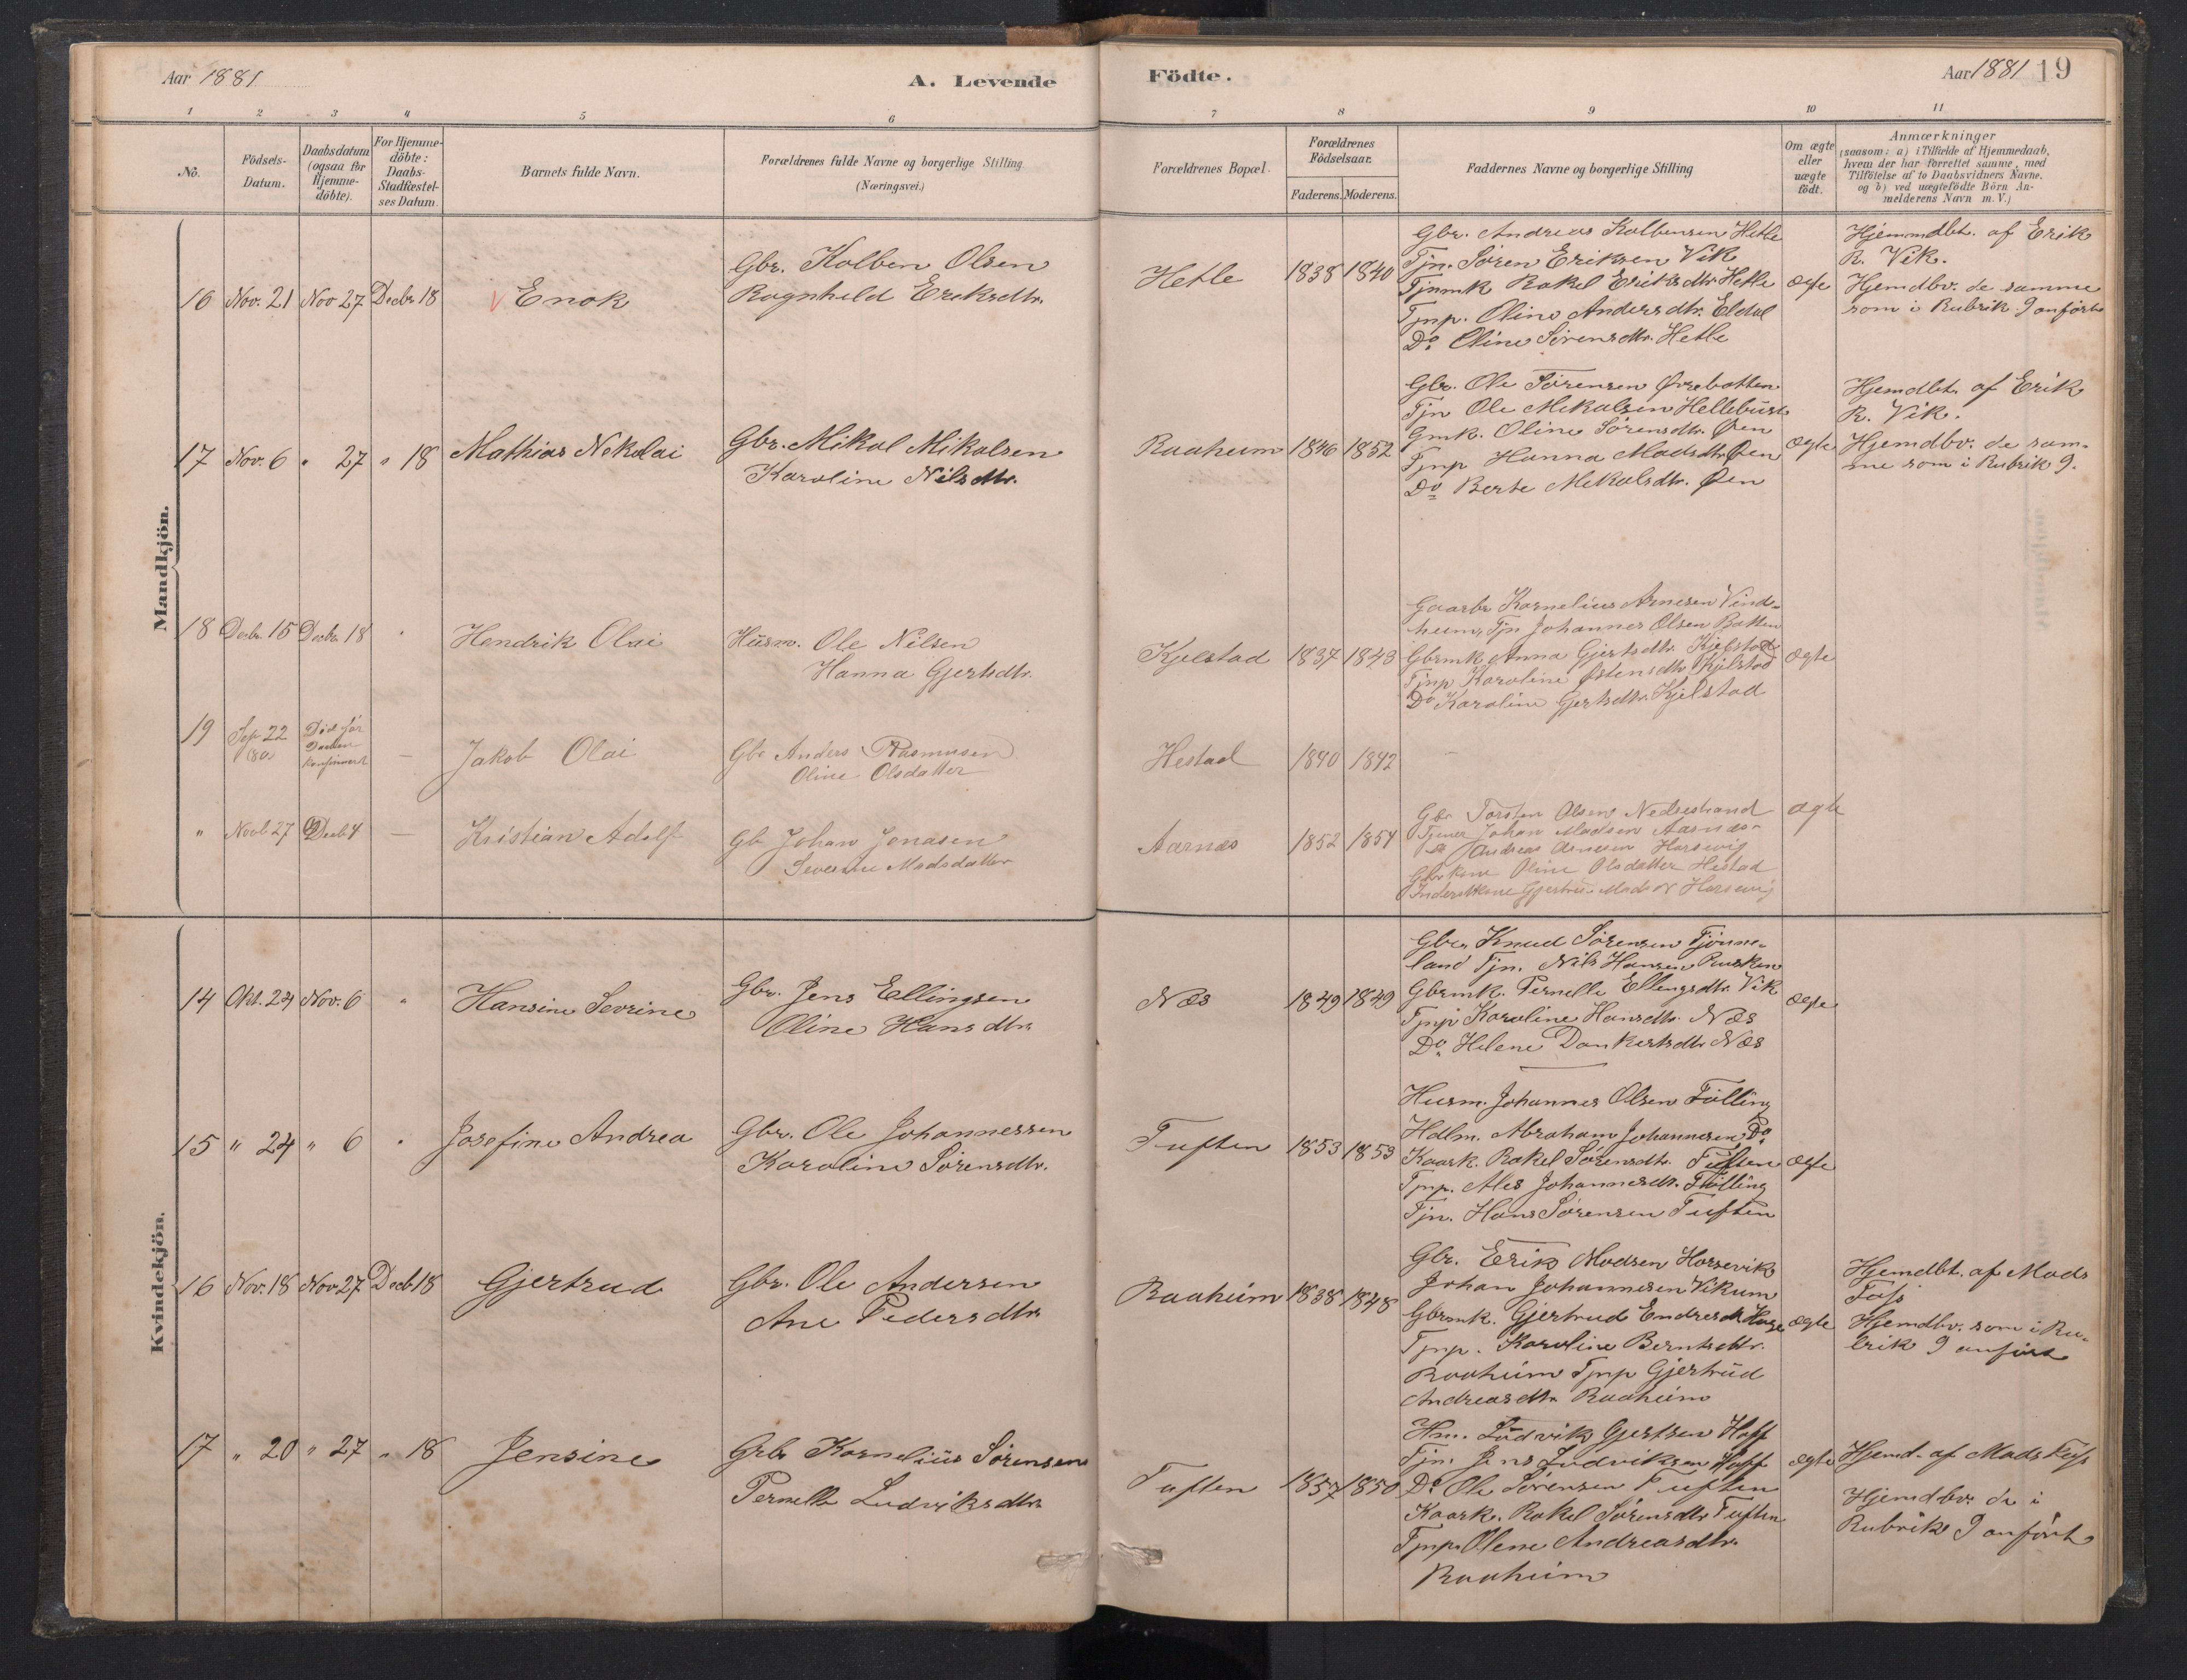 Aar 1881
A. Levende
Födte.
Aar 1881 19
1 2 3 4 5 6 7 8 9 10 11
No.
Födsels-
Datum.
Daabsdatum
(ogsaa for
Hjemme-
döbte).
For Hjemme-
döbte:
Daabs-
Stadfæstel-
ses Datum.
Barnets fulde Navn.
Forældrenes fulde Navne og borgerlige Stilling
(Næringsvei.)
Forældrenes Bopæl.
Forældrenes
Födselsaar.
Faderens. Moderens.
Faddernes Navne og borgerlige Stilling
Om ægte
eller
uægte
födt.
Anmærkninger
(saasom: a) i Tilfælde af Hjemmedaab,
hvem der har forrettet samme, med
Tilföielse af to Daabsvidners Navne.
og b) ved uægtefödte Börn An-
melderens Navn m. V.)
Mandkjön.
16 Nov. 21 Nov 27 Decbr 18
Enok
Gbr. Kolben Olsen
Ragnhild Eriksdtr.
Hetle
1838 1840
Gbr. Andreas Kolbensen Hetle
Tjn. Sören Eriksen Vik
Tjnmk Rakel Eriksdtr Hetle
Tjnp. Oline Andersdtr. Eldal
Do. Oline Sörensdtr. Hetle
ægte
Hjemmdbt. af Erik
R. Vik.
Hjemdbv. de samme
som i Rubrik 9 anförte
17 Nov. 6 " 27 " 18
Mathias Nekolai
Gbr. Mikal Mikalsen
Karoline Nilsdtr.
Raaheim
1846 1852
Gbr. Ole Sörensen Örrebotten
Tjn Ole Mikalsen Hellebust
Gmk. Oline Sörensdtr. Øen
Tjnp Hanna Madsdtr. Øen
Do Berte Mekalsdtr. Øen
ægte
Hjemdbt. af Erik
R. Vik.
Hjemdbv. de sam-
me som i Rubrik 9.
18 Decbr. 15 Decbr. 18 "
Hendrik Olai
Husm. Ole Nilsen
Hanna Gjertsdtr.
Kjelstad
1837 1843
Gaarbr Kornelius Arnesen Vind-
heim, Tjn Johannes Olsen Batten
Gbrmk Anna Gjertsdtr. Kjelstad
Tjnp Karoline Østensdtr Kjelstad
Do Karoline Gjertsdtr. Kjelstad
ægte
19 Sep 22
80
Död før
Daaben
konfirmert
—
Jakob Olai
Gbr Anders Rasmusen
Oline Olsdatter
Hestad
1840 1842
" Novb 27 Decb 4 —
Kristian Adolf
Gb Johan Jonasen
Severine Madsdatter
Aarnæs
1852 1854
Gbr Torsten Olsen Nedrestrand
Tjener Johan Madsen Aasnæs
Andreas Arnesen Horsevig
Gbrkone Oline Olsdatter Hestad
Gjertrue Mads Horsevig
ægte
Kvindekjön.
14 Okt. 24 Nov. 6 "
Hansine Sevrine
Gbr. Jens Ellingsen
Oline Hansdtr.
Næs
1849 1849
Gbr. Knud Sörensen Tjönne-
land Tjn. Nils Hansen Rusken
Gbrmk. Pernelle Ellengsdtr. Vik
Tjnp Karoline Hansdtr. Næs
Do. Helene Dankertsdtr. Næs
ægte
15 " 24 " 6 "
Josefine Andrea
Gbr. Ole Johannessen
Karoline Sörensdtr.
Tuften
1853 1853
Husm. Johannes Olsen Fölling
Hdlm. Abraham Johannesen Do.
Kaark. Rakel Sörensdtr. Tuften
Tjnp. Ales Johannesdt. Fölling
Tjn. Hans Sörensen Tuften
ægte
16 Nov. 18 Nov 27 Decb 18
Gjertrud
Gbr. Ole Andersen
Ane Pedersdtr
Raaheim
1838 1848
Gbr. Erik Madsen Horsevik
Johan Johannesen Vikum
Gbrmk. Gjertrud Endresdt Hage
Tjnp. Karoline Berntsdtr.
Raaheim Tjnp Gjertrud
Andreasdtr. Raaheim
ægte
Hjemdbt. af Mads
Fojs
Hjemdbv. som i Ru-
brik 9 anført
17 " 20 " 27 " 18
Jensine
Grbr Kornelius Sörensen
Pernelle Ludviksdtr
Tuften
1857 1850
Hm. Ludvik Gjertsen Hoff
Tjn. Jens Ludviksen Hoff
Do Ole Sörensen Tuften
Kaark. Rakel Sörensdtr Tuften
Tjnp. Olene Andreasdtr.
Raaheim
ægte
Hjemd. af Mads Fojs
Hjemdbv. de i
Rubrik 9 anført